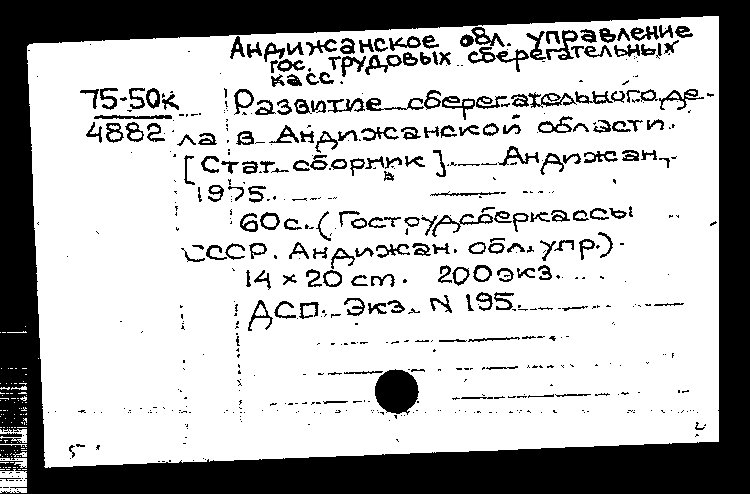 Андижанское обл. управление
гос. трудовых сберегательных
касс.
75-50к
4882
Развитие сберегательного де-
ла в Андижанской области.
[Стат. сборник]. Андижан,
1975.
60с. (Гострудсберкассы
СССР. Андижан. обл. упр.).
14 × 20 cm. 200 экз.
ДСП. Экз. N 195.